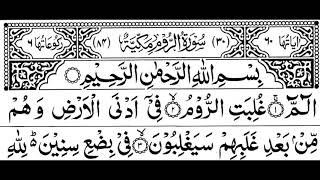 اٰيَاتُهَا ٦٠ (٣٠) سُوْرَةُ الرُّوْمِ مَكِّيَّةٌ (٨٤) رُكُوْعَاتُهَا ٦
بِسْمِ اللّٰهِ الرَّحْمٰنِ الرَّحِيْمِ
الٓمّٓ ١ غُلِبَتِ الرُّوْمُ ٢ فِيْٓ اَدْنَى الْاَرْضِ وَهُمْ
مِّنْۢ بَعْدِ غَلَبِهِمْ سَيَغْلِبُوْنَ ٣ فِيْ بِضْعِ سِنِيْنَ ؕ لِلّٰهِ